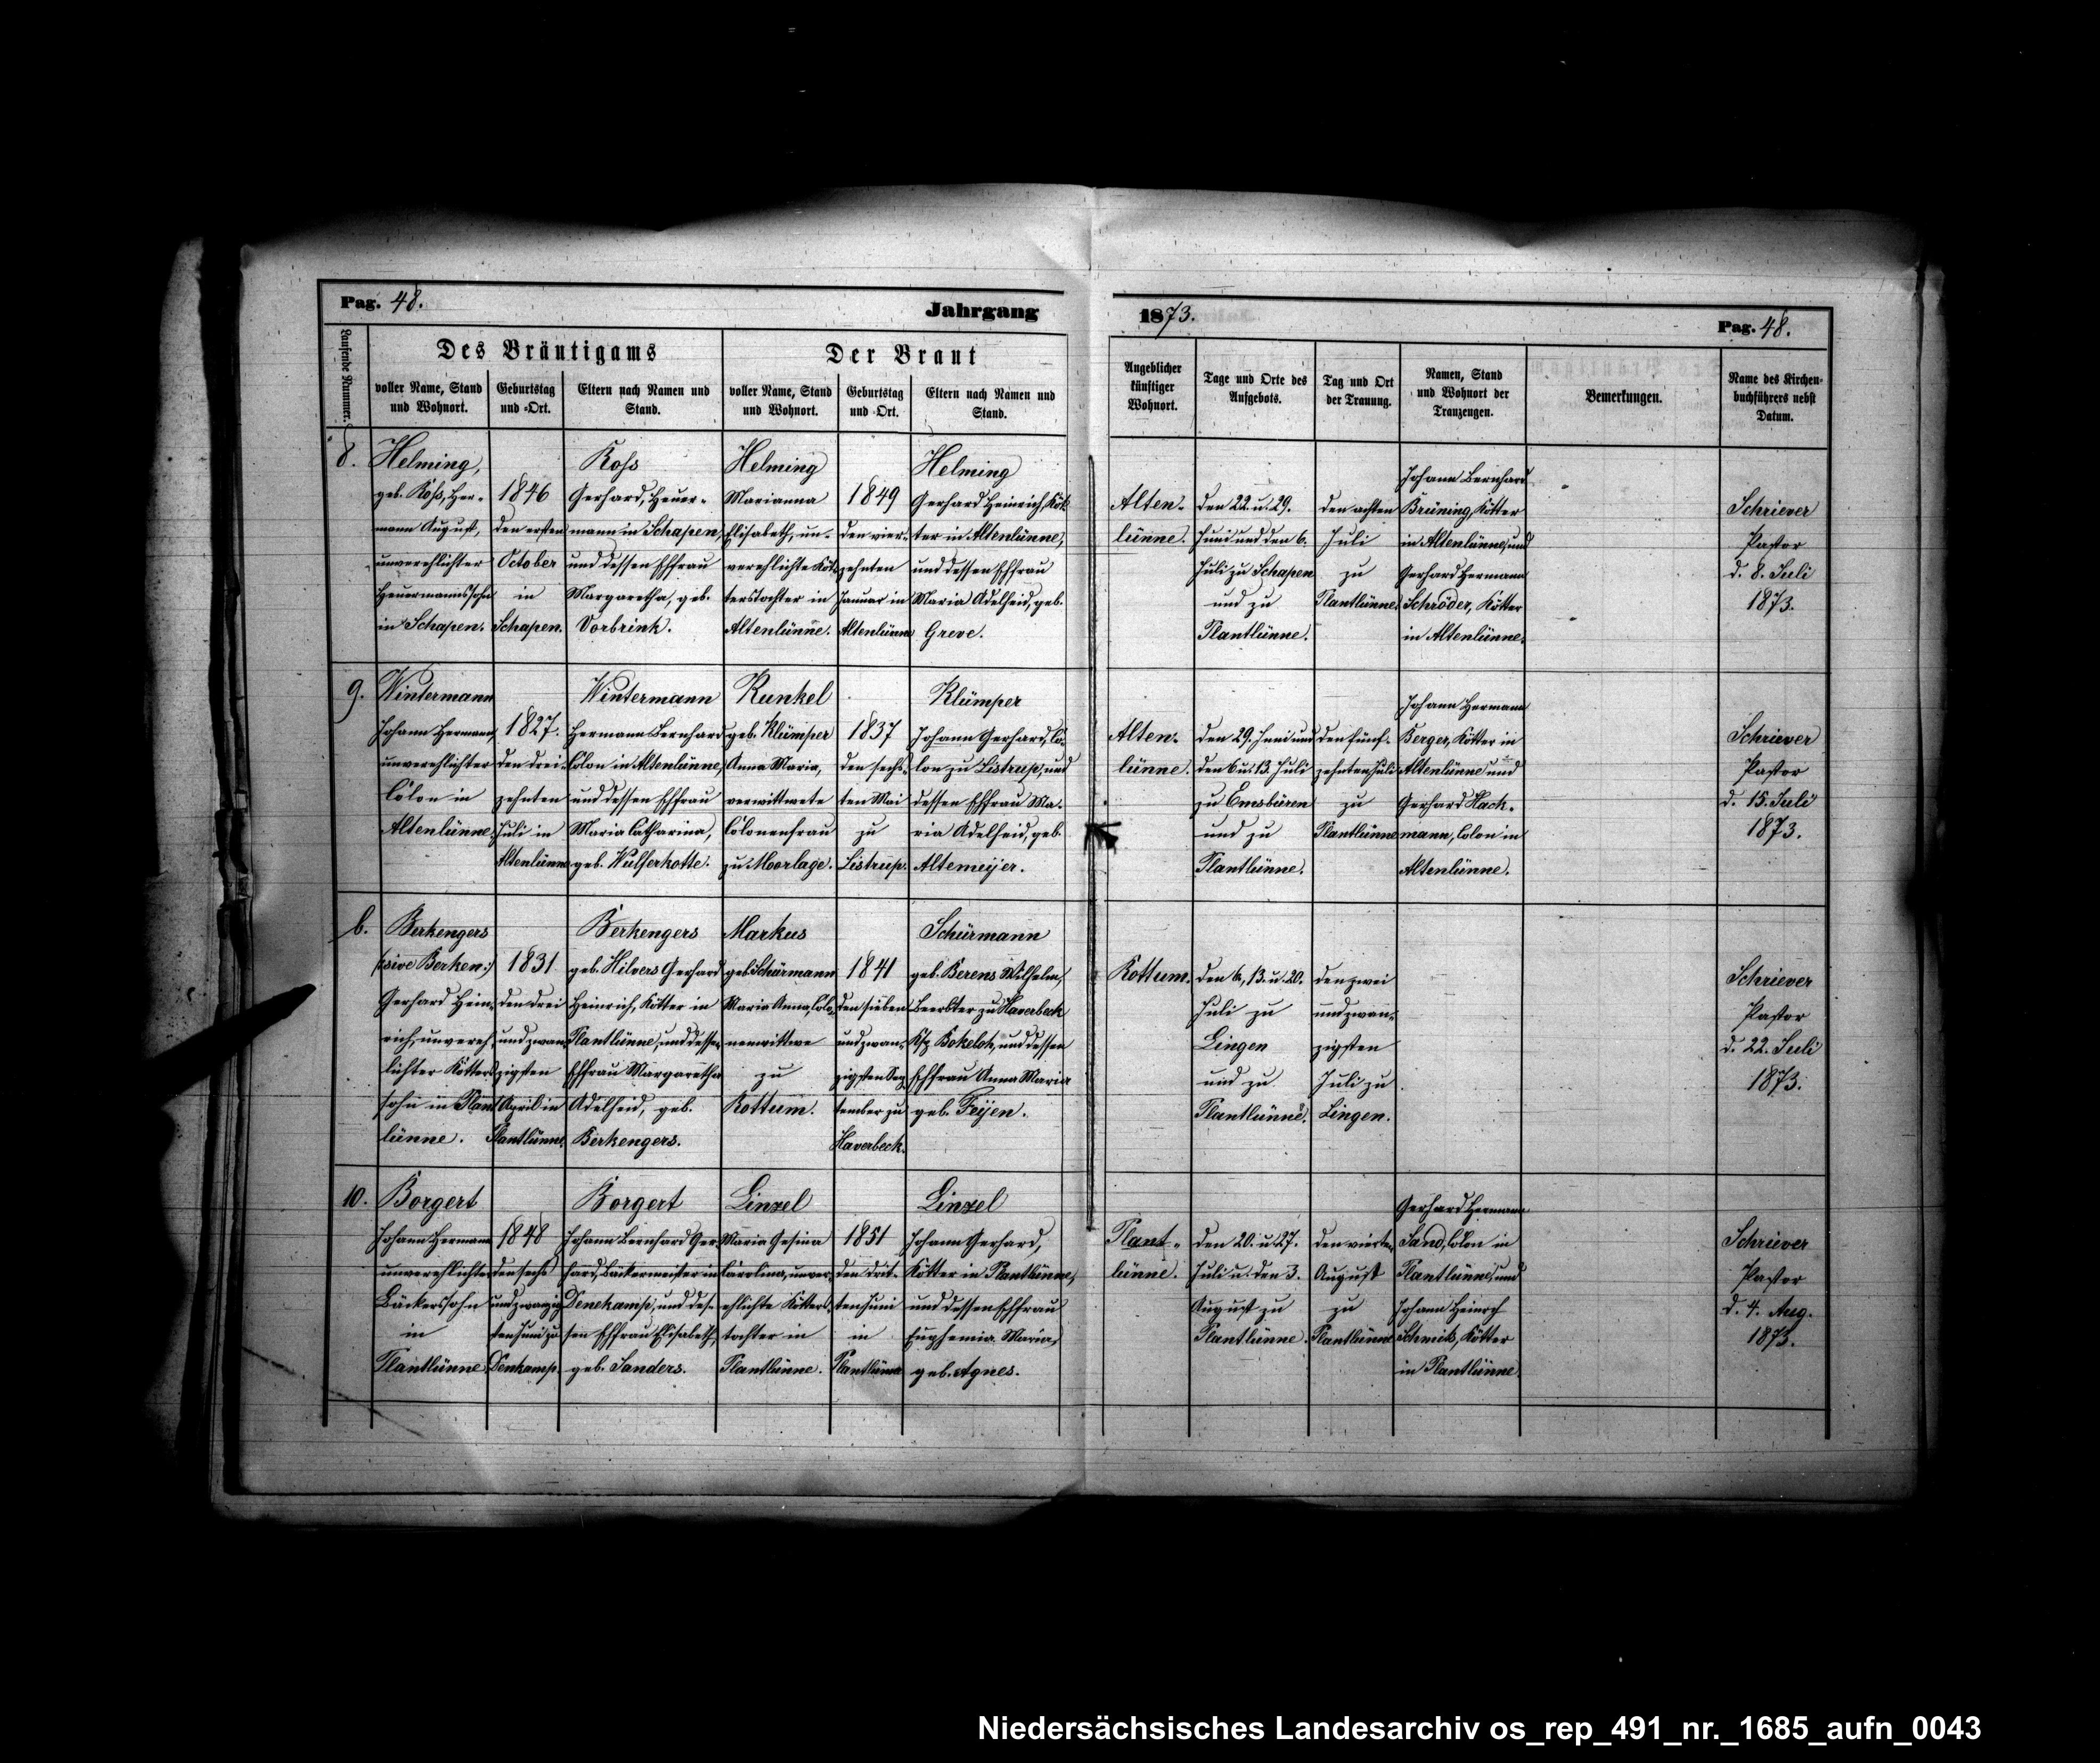 Pag. 48.
Jahrgang
1873.
Pag. 48.
Laufende Nummer.
Des Bräutigams
voller Name, Stand
und Wohnort.
Geburtstag
und =Ort.
Eltern nach Namen und
Stand.
Der Braut
voller Name, Stand
und Wohnort.
Geburtstag
und =Ort.
Eltern nach Namen und
Stand.
Angeblicher
künftiger
Wohnort.
Tage und Orte des
Aufgebots.
Tag und Ort
der Trauung.
Namen, Stand
und Wohnort der
Trauzeugen.
Bemerkungen.
Name des Kirchen=
buchführers nebst
Datum.
8.
Helming,
geb. Koß, Her-
mann August,
unverehlichter
Heuermannssohn
in Schapen.
1846
den ersten
October
in
Schapen.
Koß
Gerhard, Heuer-
mann in Schapen,
und dessen Ehfrau
Margaretha, geb.
Vorbrink.
Helming
Marianna
Elisabeth, un-
verehlichte Köt-
terstochter in
Altenlünne.
1849
den vier-
zehnten
Januar in
Altenlünne
Helming
Gerhard Heinrich, Köt-
ter in Altenlünne,
und dessen Ehfrau
Maria Adelheid, geb.
Greve.
Alten-
lünne.
den 22. u. 29.
Juni und den 6.
Juli zu Schapen
und zu
Plantlünne.
den achten
Juli
zu
Plantlünne.
Johann Bernhard
Brüning, Kötter
in Altenlünne, und
Gerhard Hermann
Schröder, Kötter
in Altenlünne.
Schriever
Pastor
d. 8. Juli
1873.
9.
Wintermann
Johann Hermann,
unverehlichter
Colon in
Altenlünne.
1827.
den drei-
zehnten
Juli in
Altenlünne
Wintermann
Hermann Bernhard
Colon in Altenlünne,
und dessen Ehfrau
Maria Catharina,
geb. Wulferkotte.
Kunkel
geb. Klümper
Anna Maria,
verwittwete
Colonenfrau
zu Moorlage.
1837
den sechs-
ten Mai
zu
Listrup.
Klümper
Johann Gerhard, Co-
lon zu Listrup, und
dessen Ehfrau Ma-
ria Adelheid, geb.
Altemeijer.
Alten-
lünne.
den 29. Juni und
den 6. u. 13. Juli
zu Emsbüren
und zu
Plantlünne.
den fünf-
zehnten Juli
zu
Plantlünne
Johann Hermann
Berger, Kötter in
Altenlünne und
Gerhard Hack-
mann, Colon in
Altenlünne.
Schriever
Pastor
d. 15. Juli
1873.
b.
Berkengers
(:sive Berken:)
Gerhard Hein-
rich, unvereh-
lichter Kötters-
sohn in Plant-
lünne.
1831
den drei
und zwan-
zigsten
April in
Plantlünne.
Berkengers
geb. Hilvers Gerhard
Heinrich, Kötter in
Plantlünne, und dessen
Ehfrau Margaretha
Adelheid, geb.
Berkengers.
Markus
geb. Schürmann
Maria Anna, Colo-
nenwittwe
zu
Rottum.
1841
den sieben
und zwan-
zigsten Sep-
tember zu
Haverbeck.
Schürmann
geb. Berens Wilhelm,
Beerbter zu Haverbeck
Ksp. Bokeloh, und dessen
Ehfrau Anna Maria
geb. Feijen.
Rottum.
den 6., 13. u. 20.
Juli zu
Lingen
und zu
Plantlünne.
den zwei
und zwan-
zigsten
Juli zu
Lingen.
Schriever
Pastor
d. 22. Juli
1873.
10.
Borgert
Johann Hermann
unverehlichter
Bäckerssohn
in
Plantlünne.
1848
den sechs
und zwanzig
sten Juni zu
Denkamp.
Borgert
Johann Bernhard Ger-
hard, Bäckermeister in
Denekamp, und des-
sen Ehfrau Elisabeth,
geb. Sanders.
Linzel
Maria Gesina
Carolina, unver-
ehlichte Kötters-
tochter in
Plantlünne.
1851
den drit-
ten Juni
in
Plantlünne
Linzel
Johann Gerhard,
Kötter in Plantlünne,
und dessen Ehfrau
Euphemia Maria,
geb. Agnes.
Plant-
lünne.
den 20. u. 27.
Juli u. den 3.
August zu
Plantlünne.
den vierten
August
zu
Plantlünne
Gerhard Hermann
Sand, Colon in
Plantlünne, und
Johann Heinrch
Schmits, Kötter
in Plantlünne.
Schriever
Pastor
d. 4. Aug.
1873.
Niedersächsisches Landesarchiv os_rep_491_nr._1685_aufn_0043